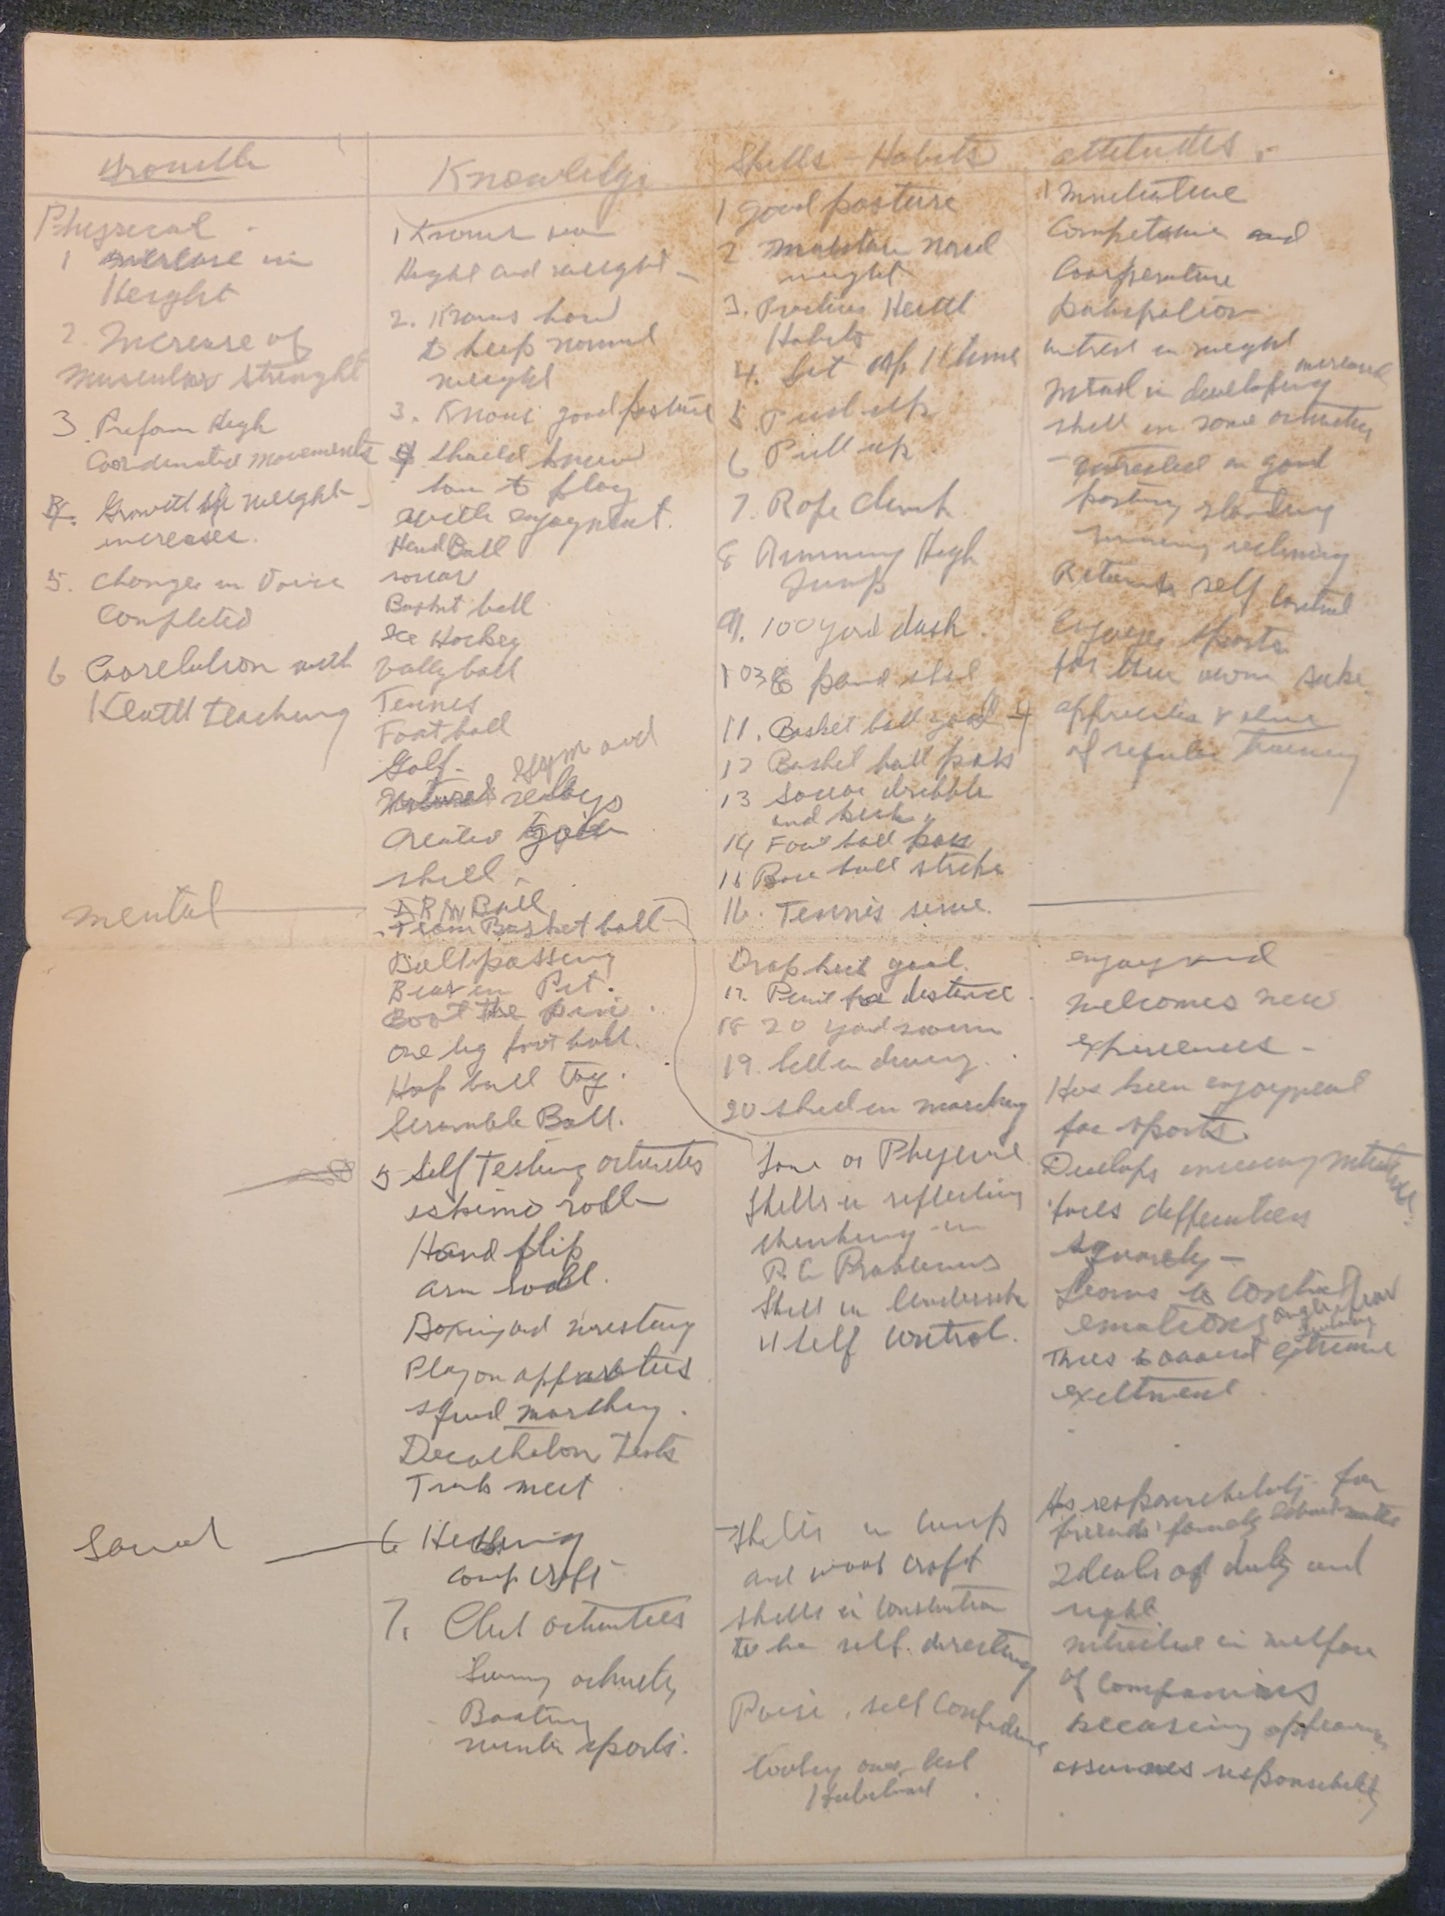 Growth
Physical -
1 increase in
Height
2. Increase of
muscular strenght
3. Preform High
Coordinated movements
4. Growth in weight
increases.
5. Changes in Voice
Completed
6 Coorelation with
Health teaching
mental
Social
Knowledge
1 Knows
Height and weight -
2. Knows how
to keep normal
weight
3. Knows good posture
4 Should know
how to play
with enjoyment.
Hand Ball
soccer
Basket ball
Ice Hockey
Volly ball
Tennis
Foot ball
Golf - Gym and
relays
Created
skill -
Ball
Team Basket ball
Ball passing
Bear in Pit.
Boot the pin.
one leg foot ball.
Hoop ball tag.
Scramble Ball.
5 Self Testing activities
eskimo roll
Hand flip
arm roll.
Boxing and wrestling
Play on apparatus
squad marching.
Decathelon tests
Track meet
6
camp craft
7. Club activities
activity
Boating
winter sports.
Skills - Habits
1 good posture
2 normal
weight
3. Practices Health
Habits
4. Set up 11 times
5 Push up
6 Pull up
7. Rope climb
8 Running High
Jump
9. 100 yard dash
10 pound shot
11. Basket ball goal
12 Basket ball pass
13 soccer dribble
and kick
14 Foot ball pass
15 Base ball strike
16. Tennis serve.
Drop kick goal.
17. Punt for distance.
18 20 yard swim
19. Skill in diving.
20 skill in marching
Some or Physical
skills in reflecting
thinking in
P.E. Problems
Skill in leadership
" self control.
Skills in camp
and wood craft
skills in
to be self directing
Poise, self confidence
attitudes -
1
Competative and
Cooperative
interest in weight
interest in developing increased
skill in some activities
- intrested in good
standing
running reclining
Retains self control
Enjoyes sports
for their own sake
appreciates value
of regular training
enjoys and
welcomes new
experiences -
Has been enjoyment
for sports.
Develops
faces difficulties
squarely -
Learns to control
emotions anger
Tries to avoid extreme
excitment
Has responsibility for
friends family
Ideals of duty and
right
intrested in welfare
of companions
assumes responsibility